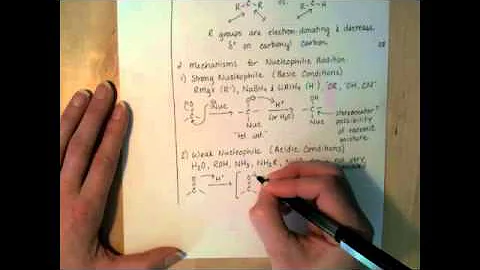 R-C-R vs. R-C-H
R groups are electron-donating & decrease
δ+ on carbonyl carbon.
2 Mechanisms for Nucleophilic Addition
1) Strong Nucleophile (Basic Conditions)
RMgX (R⁻), NaBH4 & LiAlH4 (H⁻), ⁻OR, ⁻OH, CN⁻
H⁺ OH
C C C stereocenter?
Nuc (or H2O) possibility
Nuc Nuc of racemic
"tet. int." mixture
2) Weak Nucleophile (Acidic Conditions)
H2O, ROH, NH3, NH2R, not very
H⁺